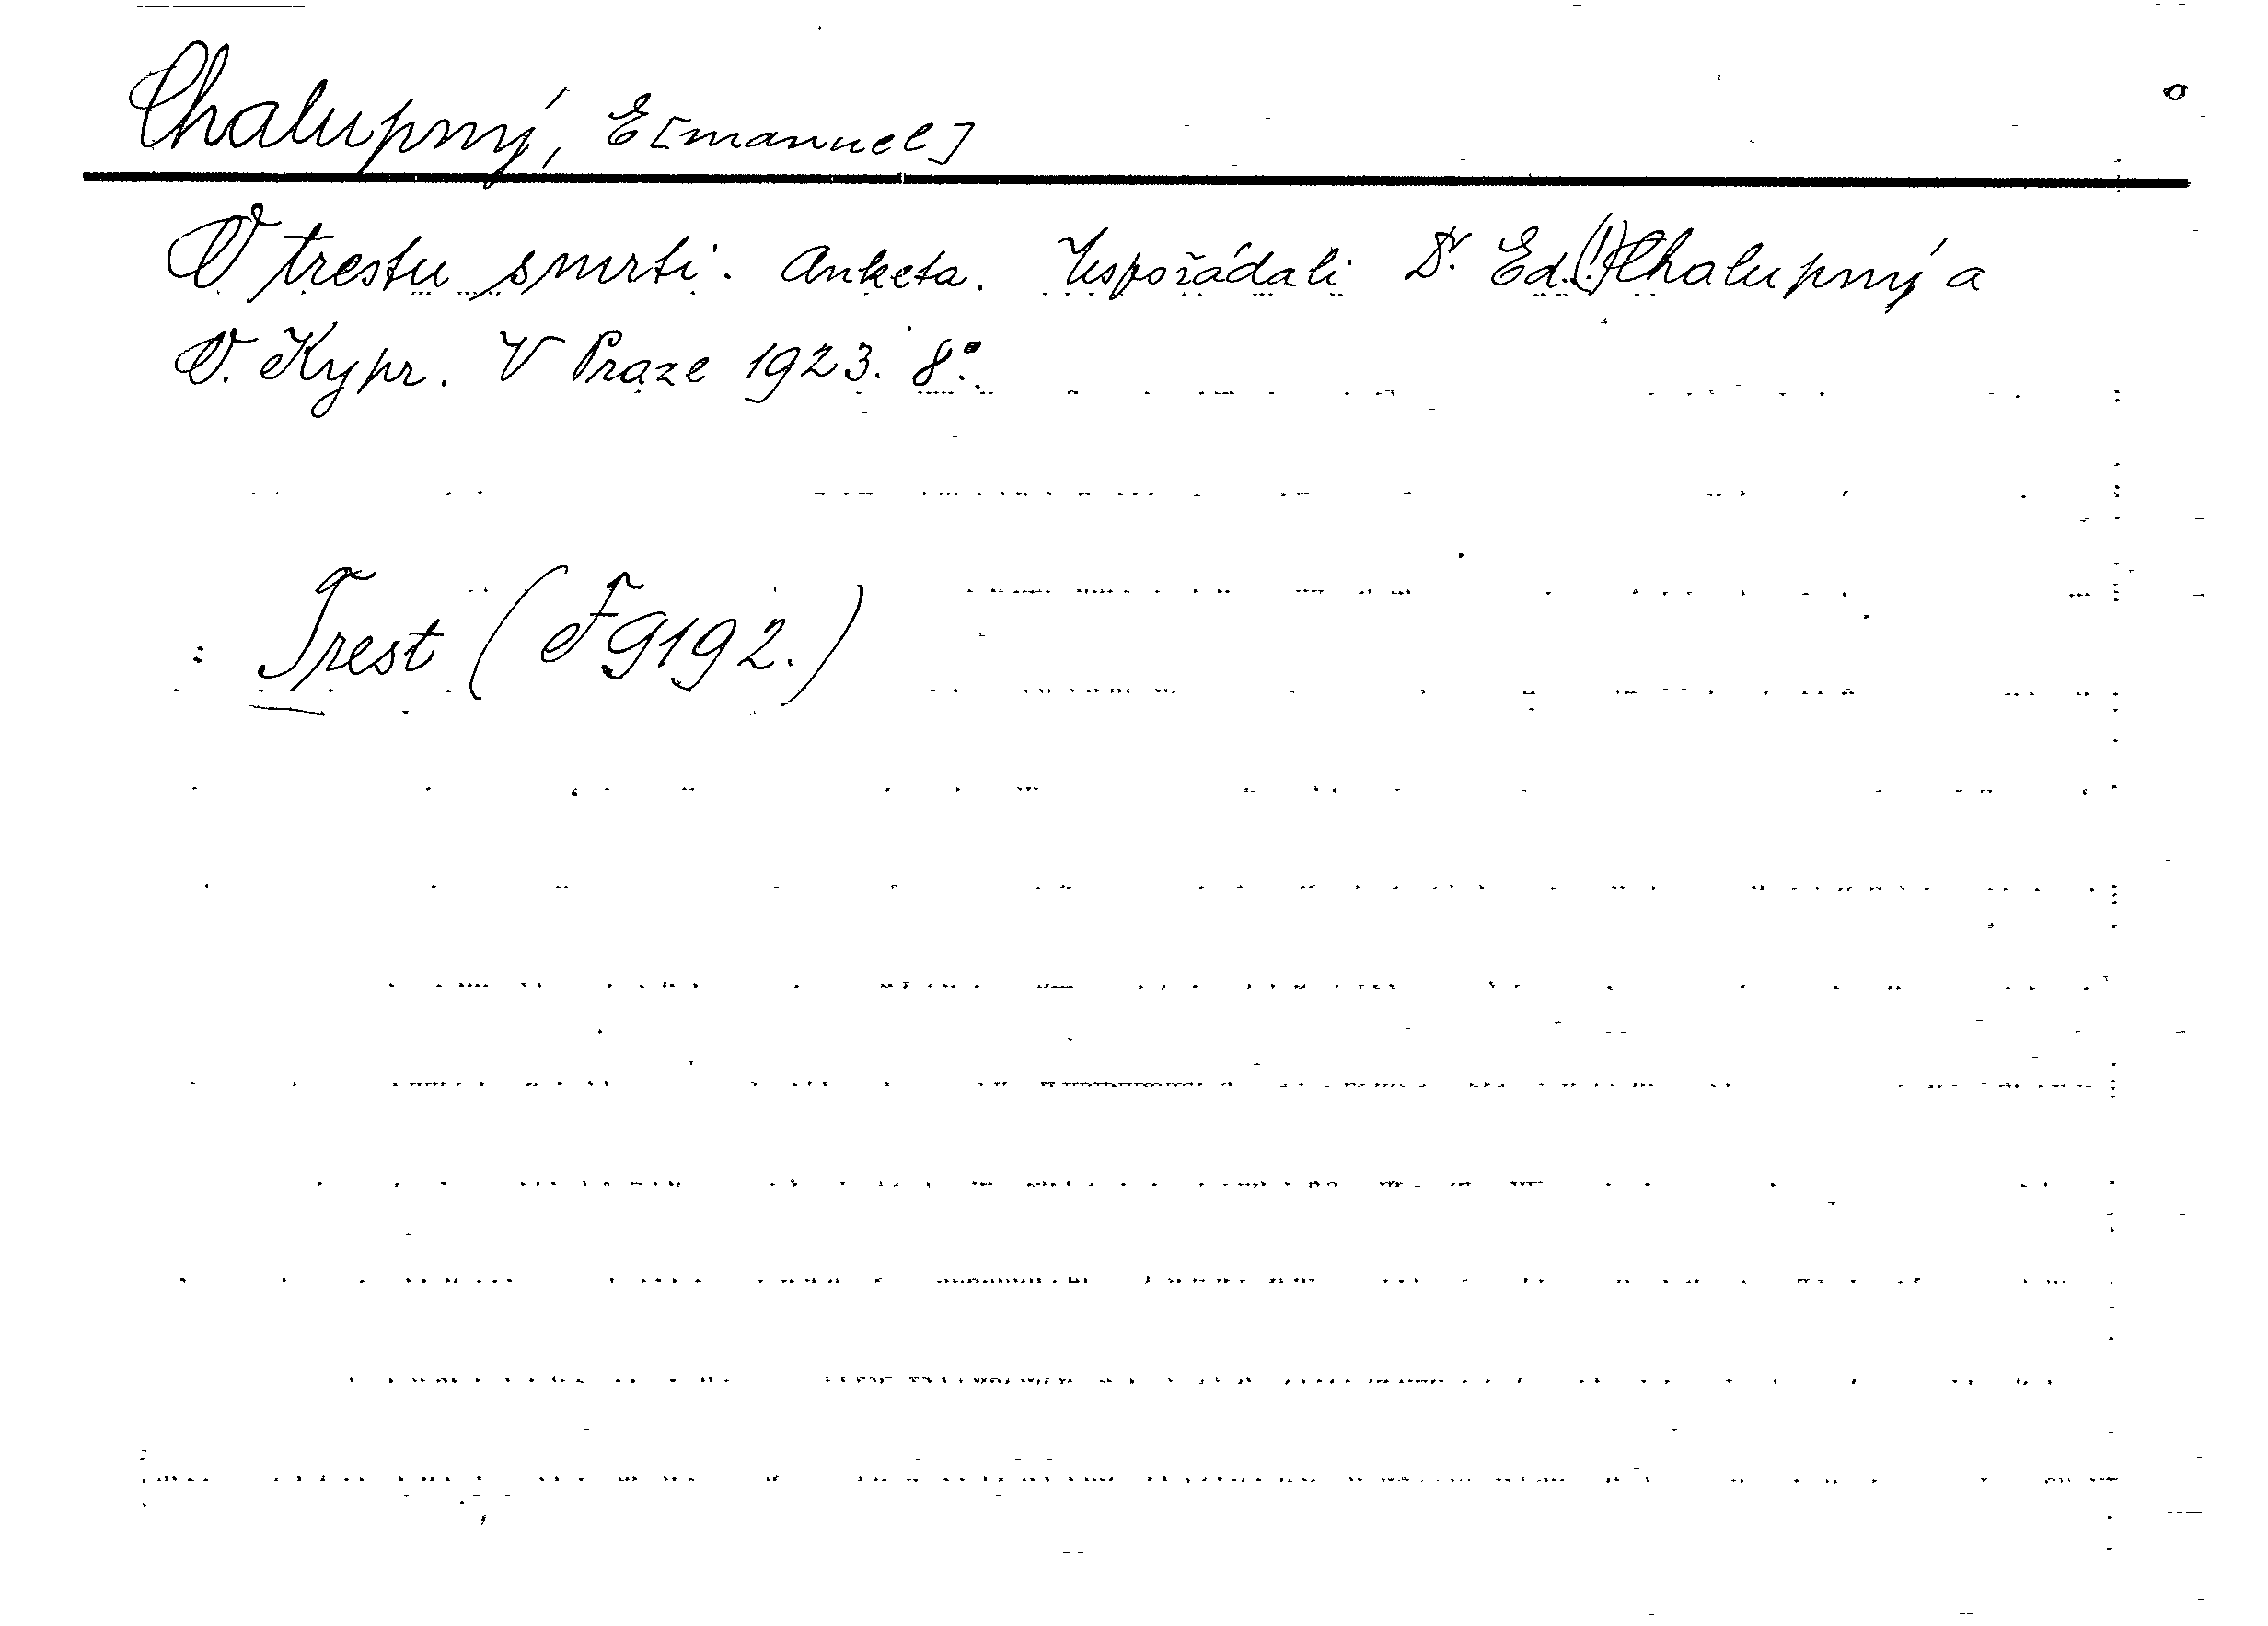 Chalupný, E[manuel]
O trestu smrti. Anketa. Uspořádali Dr. Ed.(!) Chalupný a
O. Kypr. V Praze 1923. 8°.
: Trest (F 9192.)